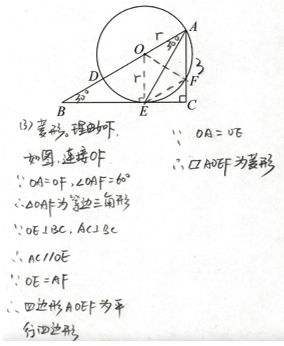 A
r
30°
O
3
r
F
D
30°
B
E
C
(3) 菱形。理由如下.
如图, 连接OF
∵ OA=OF, ∠OAF=60°
∴ △OAF为等边三角形
∵ OE⊥BC, AC⊥BC
∴ AC//OE
∵ OE=AF
∴ 四边形AOEF为平
行四边形
∵ OA=OE
∴ □AOEF为菱形